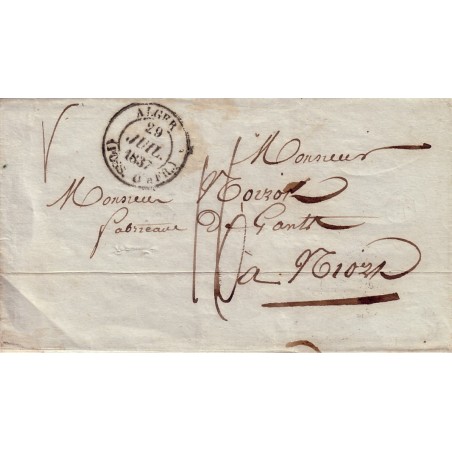 ALGER
29
JUIL.
1837
(POSS. D'AFR.)
Monsieur
Monsieur Noirot
fabricant De Gants
à Niort